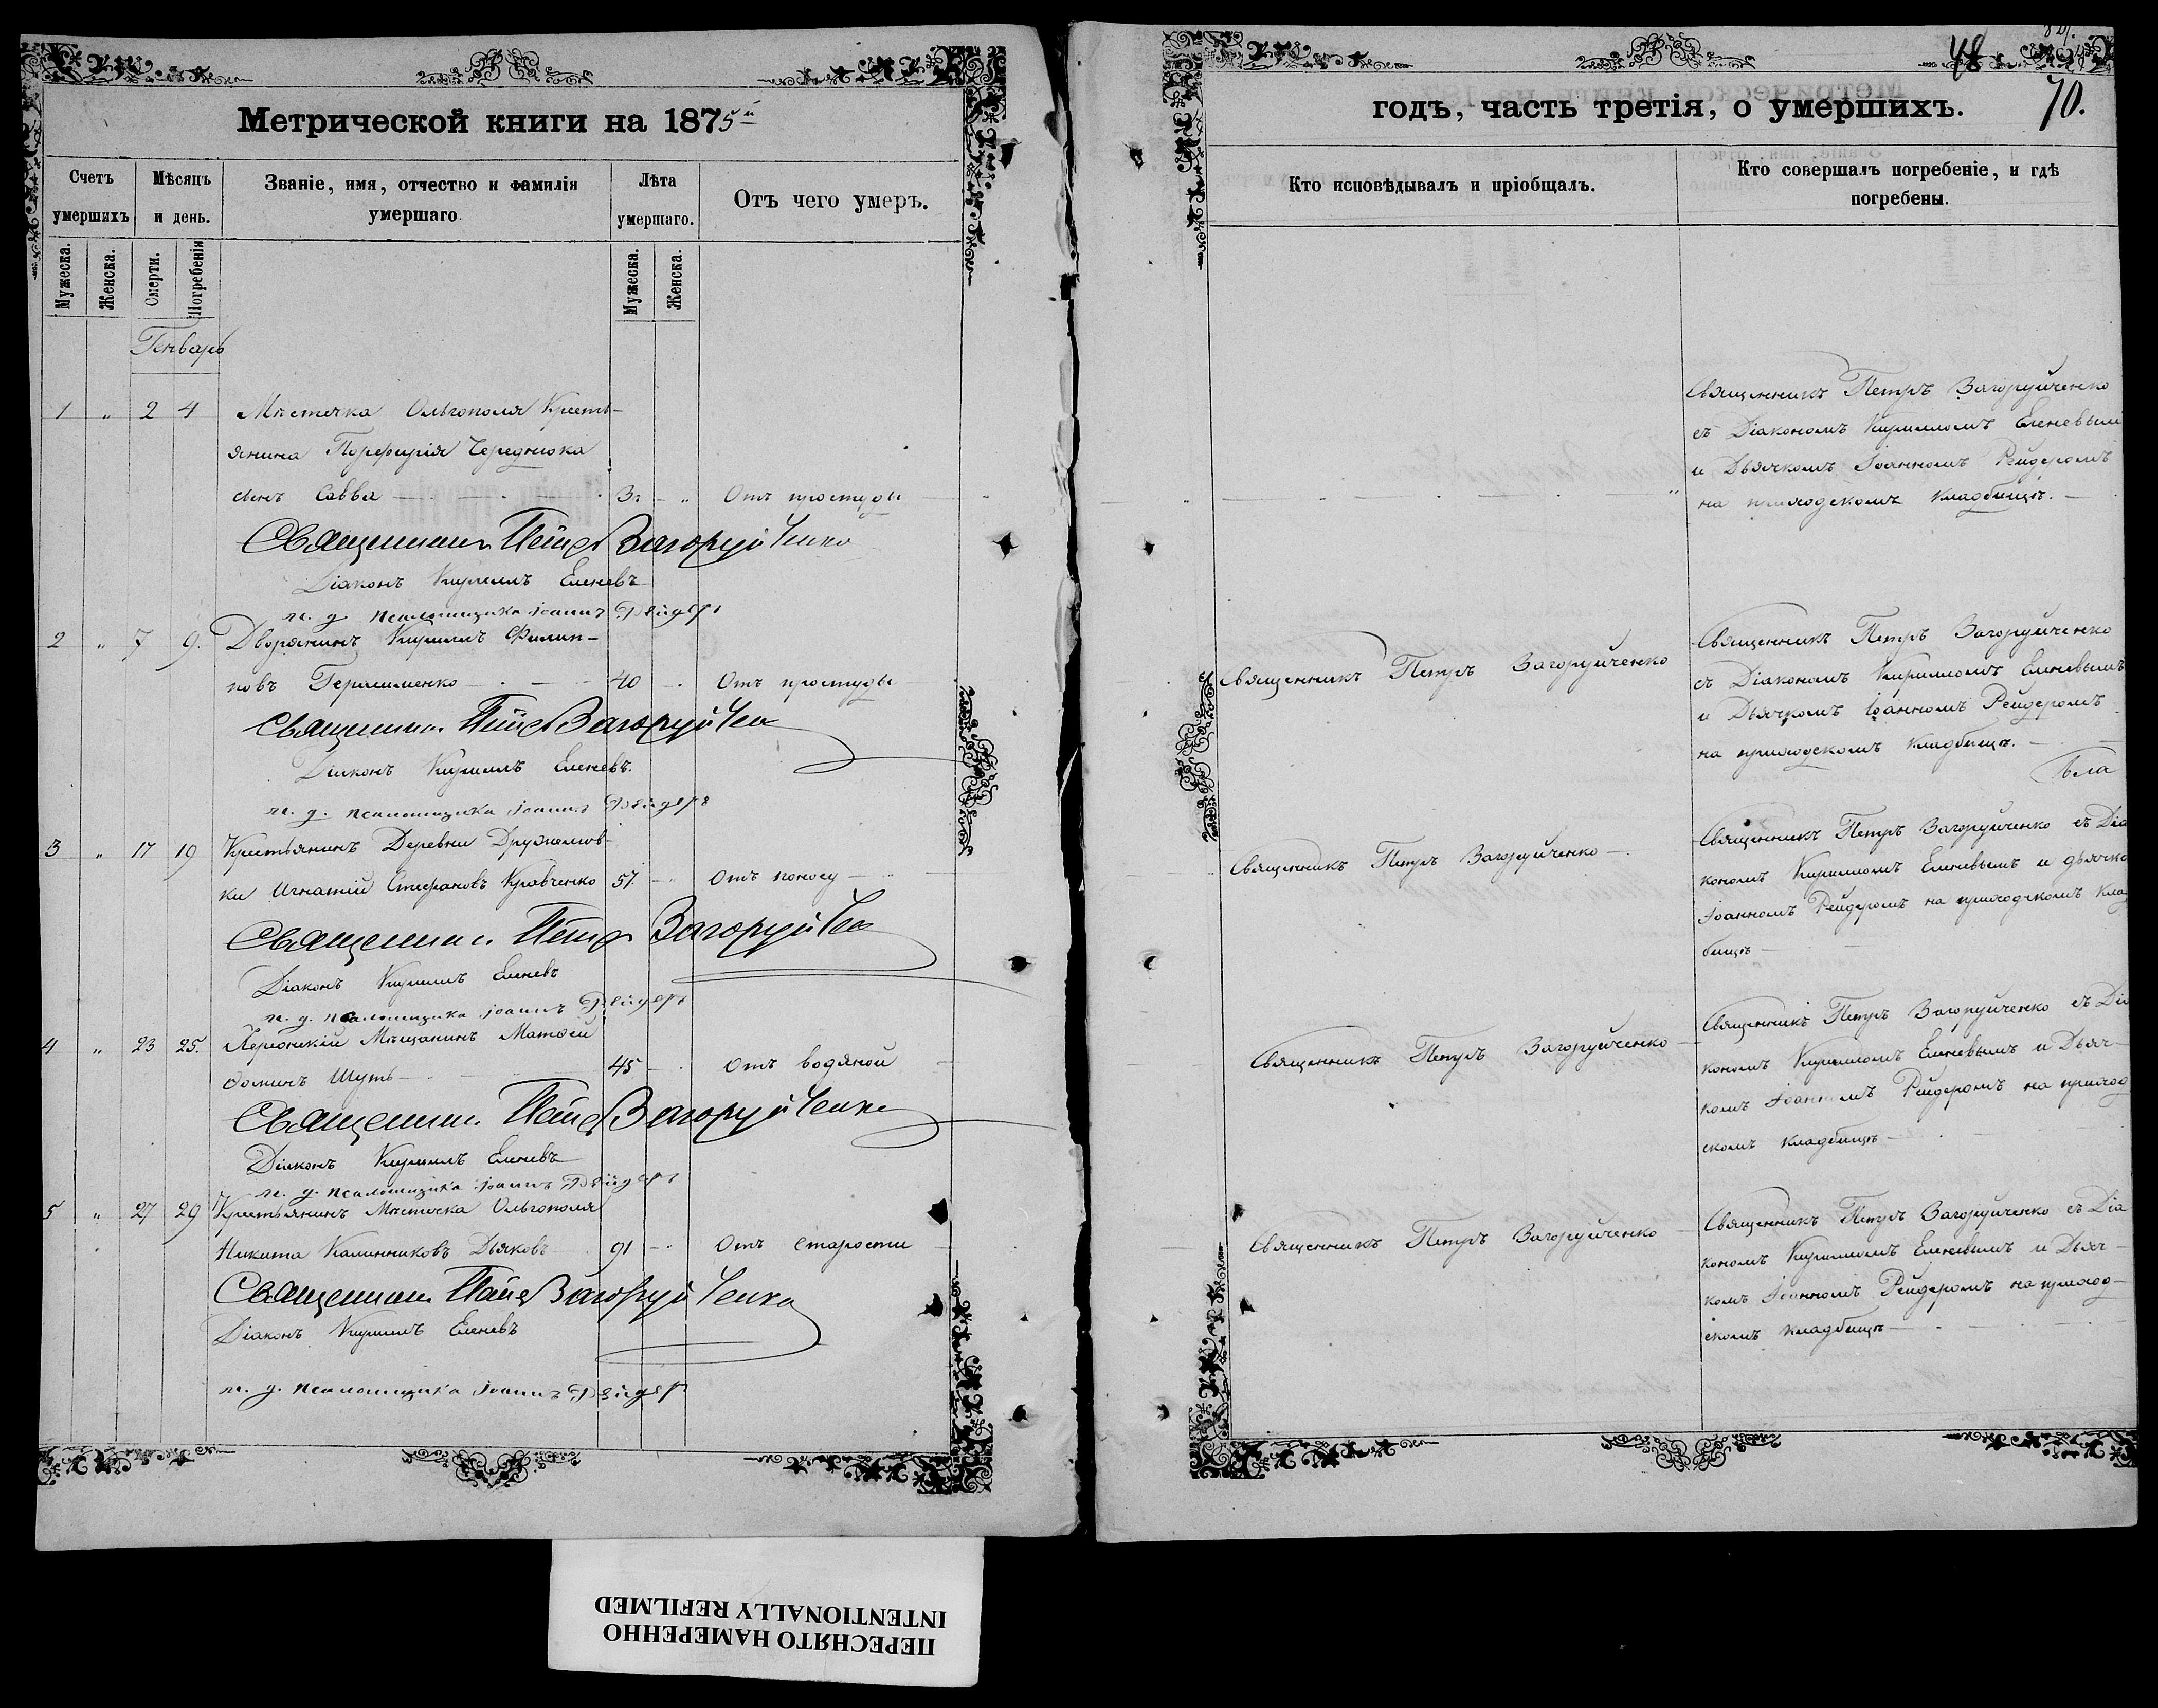 Метрической книги на 1875й
Счетъ умершихъ
Мѣсяцъ и день.
Званіе, имя, отчество и фамилія умершаго
Лѣта умершаго.
Отъ чего умеръ.
Мужеска.
Женска.
Смерти.
Погребенія
Мужеска.
Женска.
Генварь
1 " 2 4 Мѣстечка Ольгополя Кресть-
янина Порфирія Череднюка
сынъ Савва 3г " Отъ простуды
Священникъ Петръ Загоруйченко
Діаконъ Кириллъ Еленевъ
и. д. псаломщика Іоаннъ Рейдеръ
2 " 7 9. Дворянинъ Кириллъ Филип-
повъ Герасименко 40 Отъ простуды
Священникъ Петръ Загоруйченко
Діаконъ Кириллъ Еленевъ.
и. д. псаломщика Іоаннъ Рейдеръ
3 " 17 19 Крестьянинъ Деревни Дружелюбов-
ки Игнатій Стефановъ Кравченко 57. Отъ поносу
Священникъ Петръ Загоруйченко
Діаконъ Кириллъ Еленевъ
и. д. псаломщика Іоаннъ Рейдеръ
4 " 23 25. Херсонскій Мѣщанинъ Матѳей
Ѳоминъ Шуть 45 Отъ водяной
Священникъ Петръ Загоруйченко
Діаконъ Кириллъ Еленевъ
и. д. псаломщика Іоаннъ Рейдеръ
5 " 27 29 Крестьянинъ Мѣстечка Ольгополя
Никита Калинниковъ Дьяковъ 91 Отъ старости
Священникъ Петръ Загоруйченко
Діаконъ Кириллъ Еленевъ
и. д. псаломщика Іоаннъ Рейдеръ
48
годъ, часть третія, о умершихъ.
70.
Кто исповѣдывалъ и пріобщалъ.
Кто совершалъ погребеніе, и гдѣ погребены.
Священникъ Петръ Загоруйченко
съ Діакономъ Кирилломъ Еленевым
и Дьячкомъ Іоанномъ Рейдеромъ
на приходскомъ кладбищѣ.
Священникъ Петръ Загоруйченко
Священникъ Петръ Загоруйченко
съ Діакономъ Кирилломъ Еленевымъ
и Дьячкомъ Іоанномъ Рейдеромъ
на приходскомъ кладбищѣ.
Священникъ Петръ Загоруйченко
Священникъ Петръ Загоруйченко съ Діа
кономъ Кирилломъ Еленевымъ и дьячко
Іоанномъ Рейдеромъ на приходскомъ клад
бищѣ
Священникъ Петръ Загоруйченко
Священникъ Петръ Загоруйченко съ Діа
кономъ Кирилломъ Еленевымъ и Дьяч-
комъ Іоанномъ Рейдеромъ на приход
скомъ кладбищѣ
Священникъ Петръ Загоруйченко
Священникъ Петръ Загоруйченко съ Діа
кономъ Кирилломъ Еленевымъ и Дьяч-
комъ Іоанномъ Рейдеромъ на приход-
скомъ кладбищѣ
ПЕРЕСНЯТО НАМЕРЕННО
INTENTIONALLY REFILMED